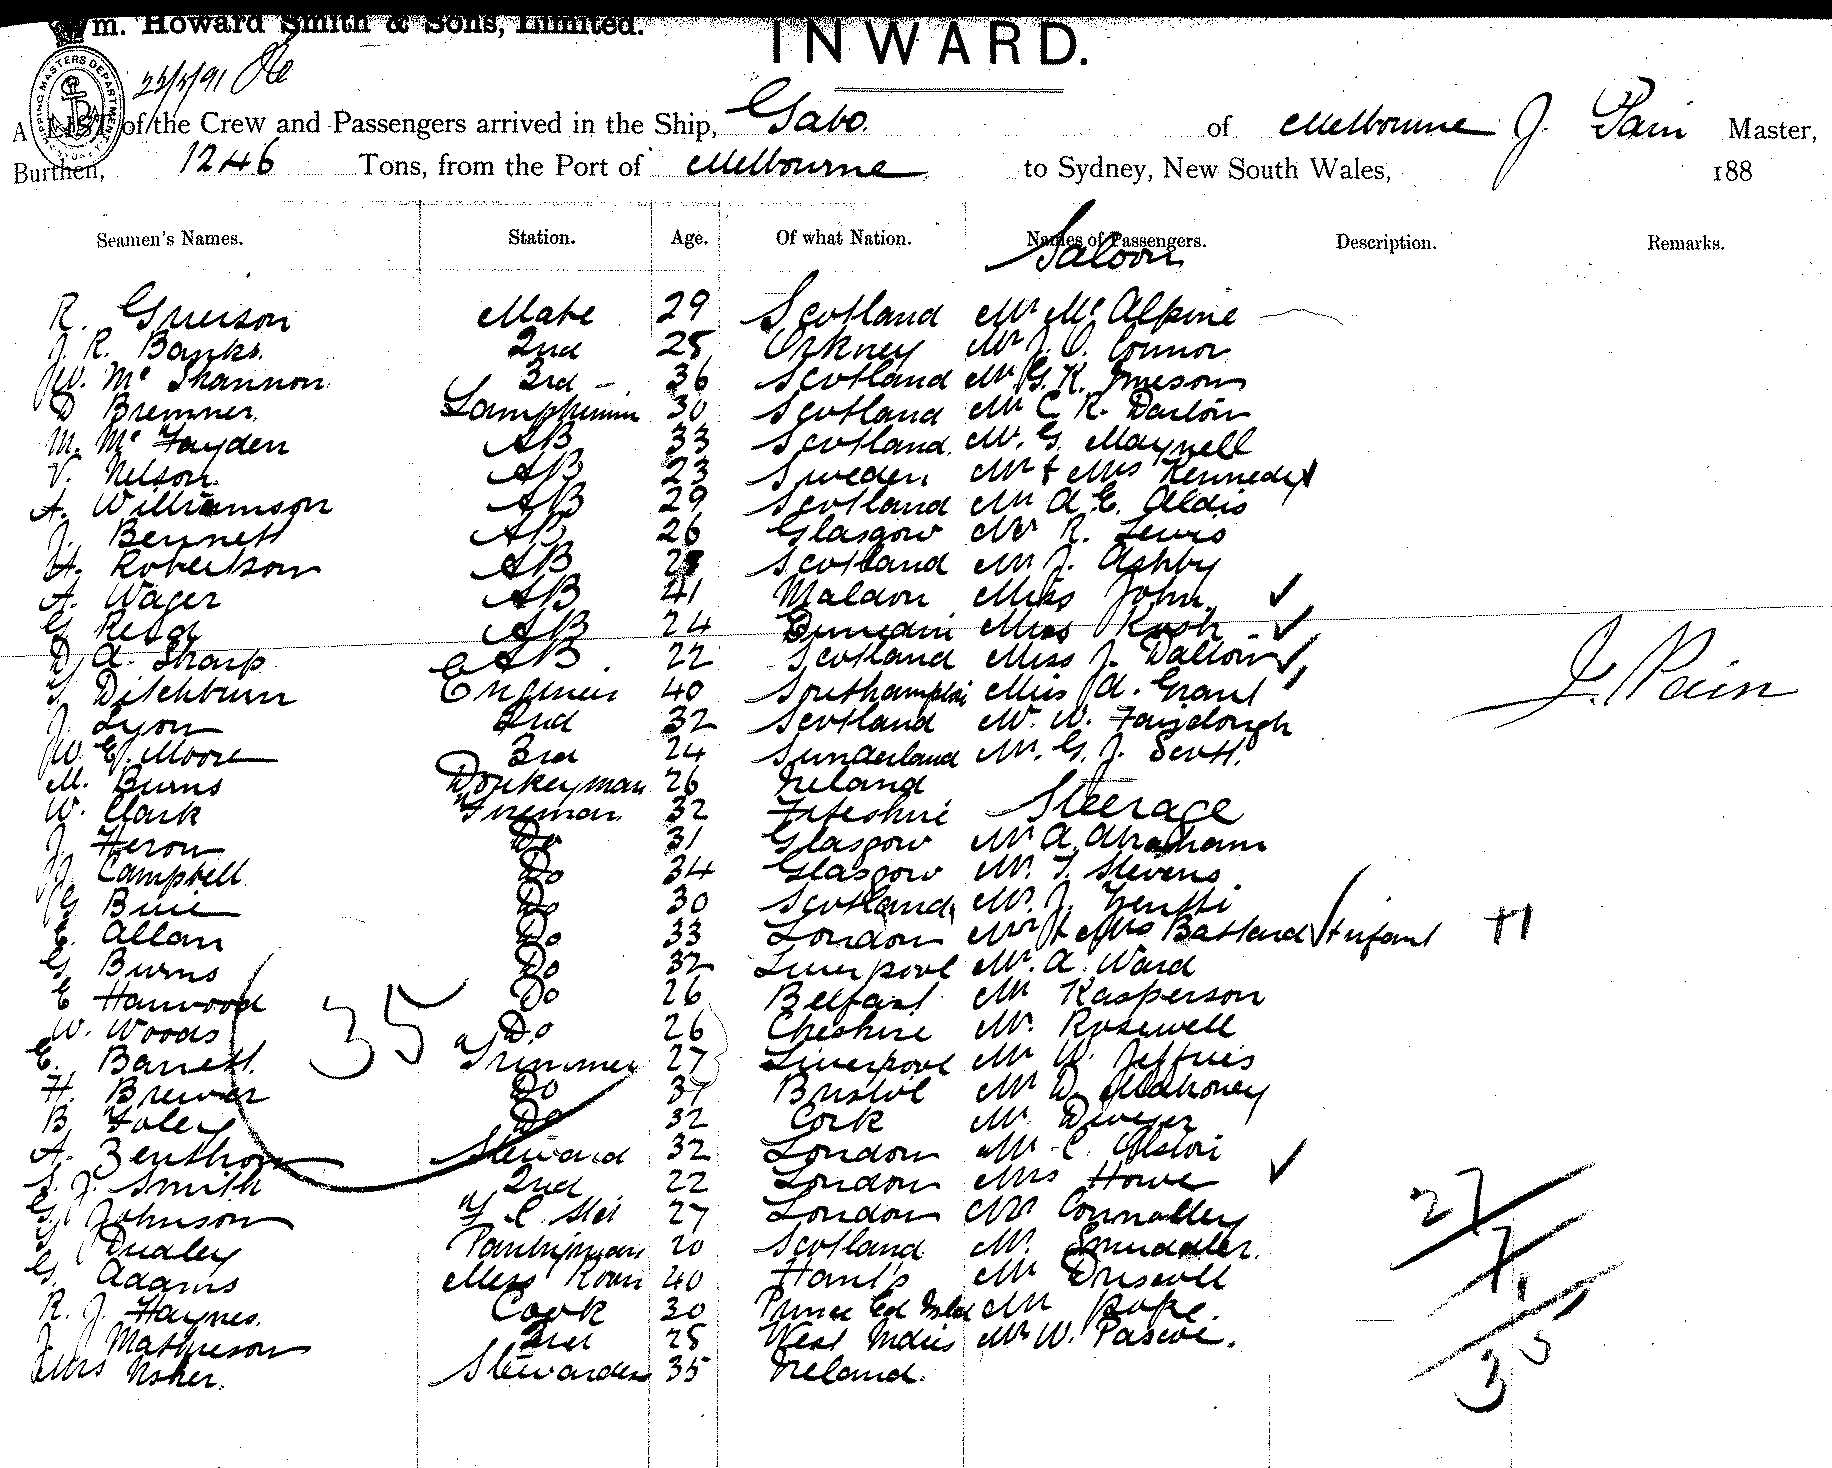 Wm. Howard Smith & Sons, Limited.
INWARD.
A LIST of the Crew and Passengers arrived in the Ship, Gabo. of Melbourne J. Pain Master,
Burthen, 1246 Tons, from the Port of Melbourne to Sydney, New South Wales, 188
Seamen's Names. Station. Age. Of what Nation. Names of Passengers. Description. Remarks.
Saloon
R. Grierson Mate 29 Scotland Mr Mc Alpine
J. R. Banks. 2nd 25 Orkney Mr J. O. Connor
W. Mc Shannon 3rd - 36 Scotland Mr G. K. Jmeson
D Bremner. Lamptrimm 30 Scotland Mr C. R. Darlow
M. Mc Fayden AB 33 Scotland. Mr. G. Maynell
V. Nelson. AB 23 Sweden Mr & Mrs Kennedy
A. Williamson AB 29 Scotland Mr A. E. Aldis
J. Bennett AB 26 Glasgow Mr R. Lewis
H. Robertson AB Scotland Mr J. Ashby
A. Wager AB 41 Maldon Miss John.
G. Reid AB 24 Dunedin Miss Rush
D. A. Sharp AB 22 Scotland Miss J. Dallow
Ditchburn Engineer 40 Southampton Miss A. Grant
J. Lyon 2nd 32 Scotland Mr. W. Fayelough
W. E. Moore 3rd 24 Sunderland Mr. G. J. Scott.
M. Burns Donkeyman 26 Ireland
W. Clark Fireman 32 Fifeshire Steerage
J. Heron Do 31 Glasgow Mr A. Abraham
J. Campbell Do 34 Glasgow Mr. T. Stevens.
G Buie Do 30 Scotland Mr. J.
C. Allan Do 33 London Mr & Mrs Batland & infant +1
G Burns Do 32 Liverpool Mr. A. Ward
E Harwood Do 26 Belfast Mr Kasperson
W. Woods Do 26 Cheshire Mr. Rosewell
E. Barrett. Trimmer 27 Liverpool Mr W. Jeffries
H. Brewer Do 37 Bristol Mr D. Mahoney
B. Foley Do 32 Cork Mr Dwyer
A. Zenthon Steward 32 London Mr C. Alston
S. J. Smith 2nd 22 London Mrs Howe
G. Johnson F. C. Std 27 London Mr Connolley
Dudley Pantryman 20 Scotland Mr. Smuddler.
G. Adams Mess Room 40 Hants Mr Driscoll
R. J. Haynes. Cook 30 Prince Ed Island Mr Pope.
J. Mathieson 2nd 25 West Indies Mr W. Pascoe.
Mrs Usher. Stewardess 35 Ireland.
35
J. Pain
27
7
1
35